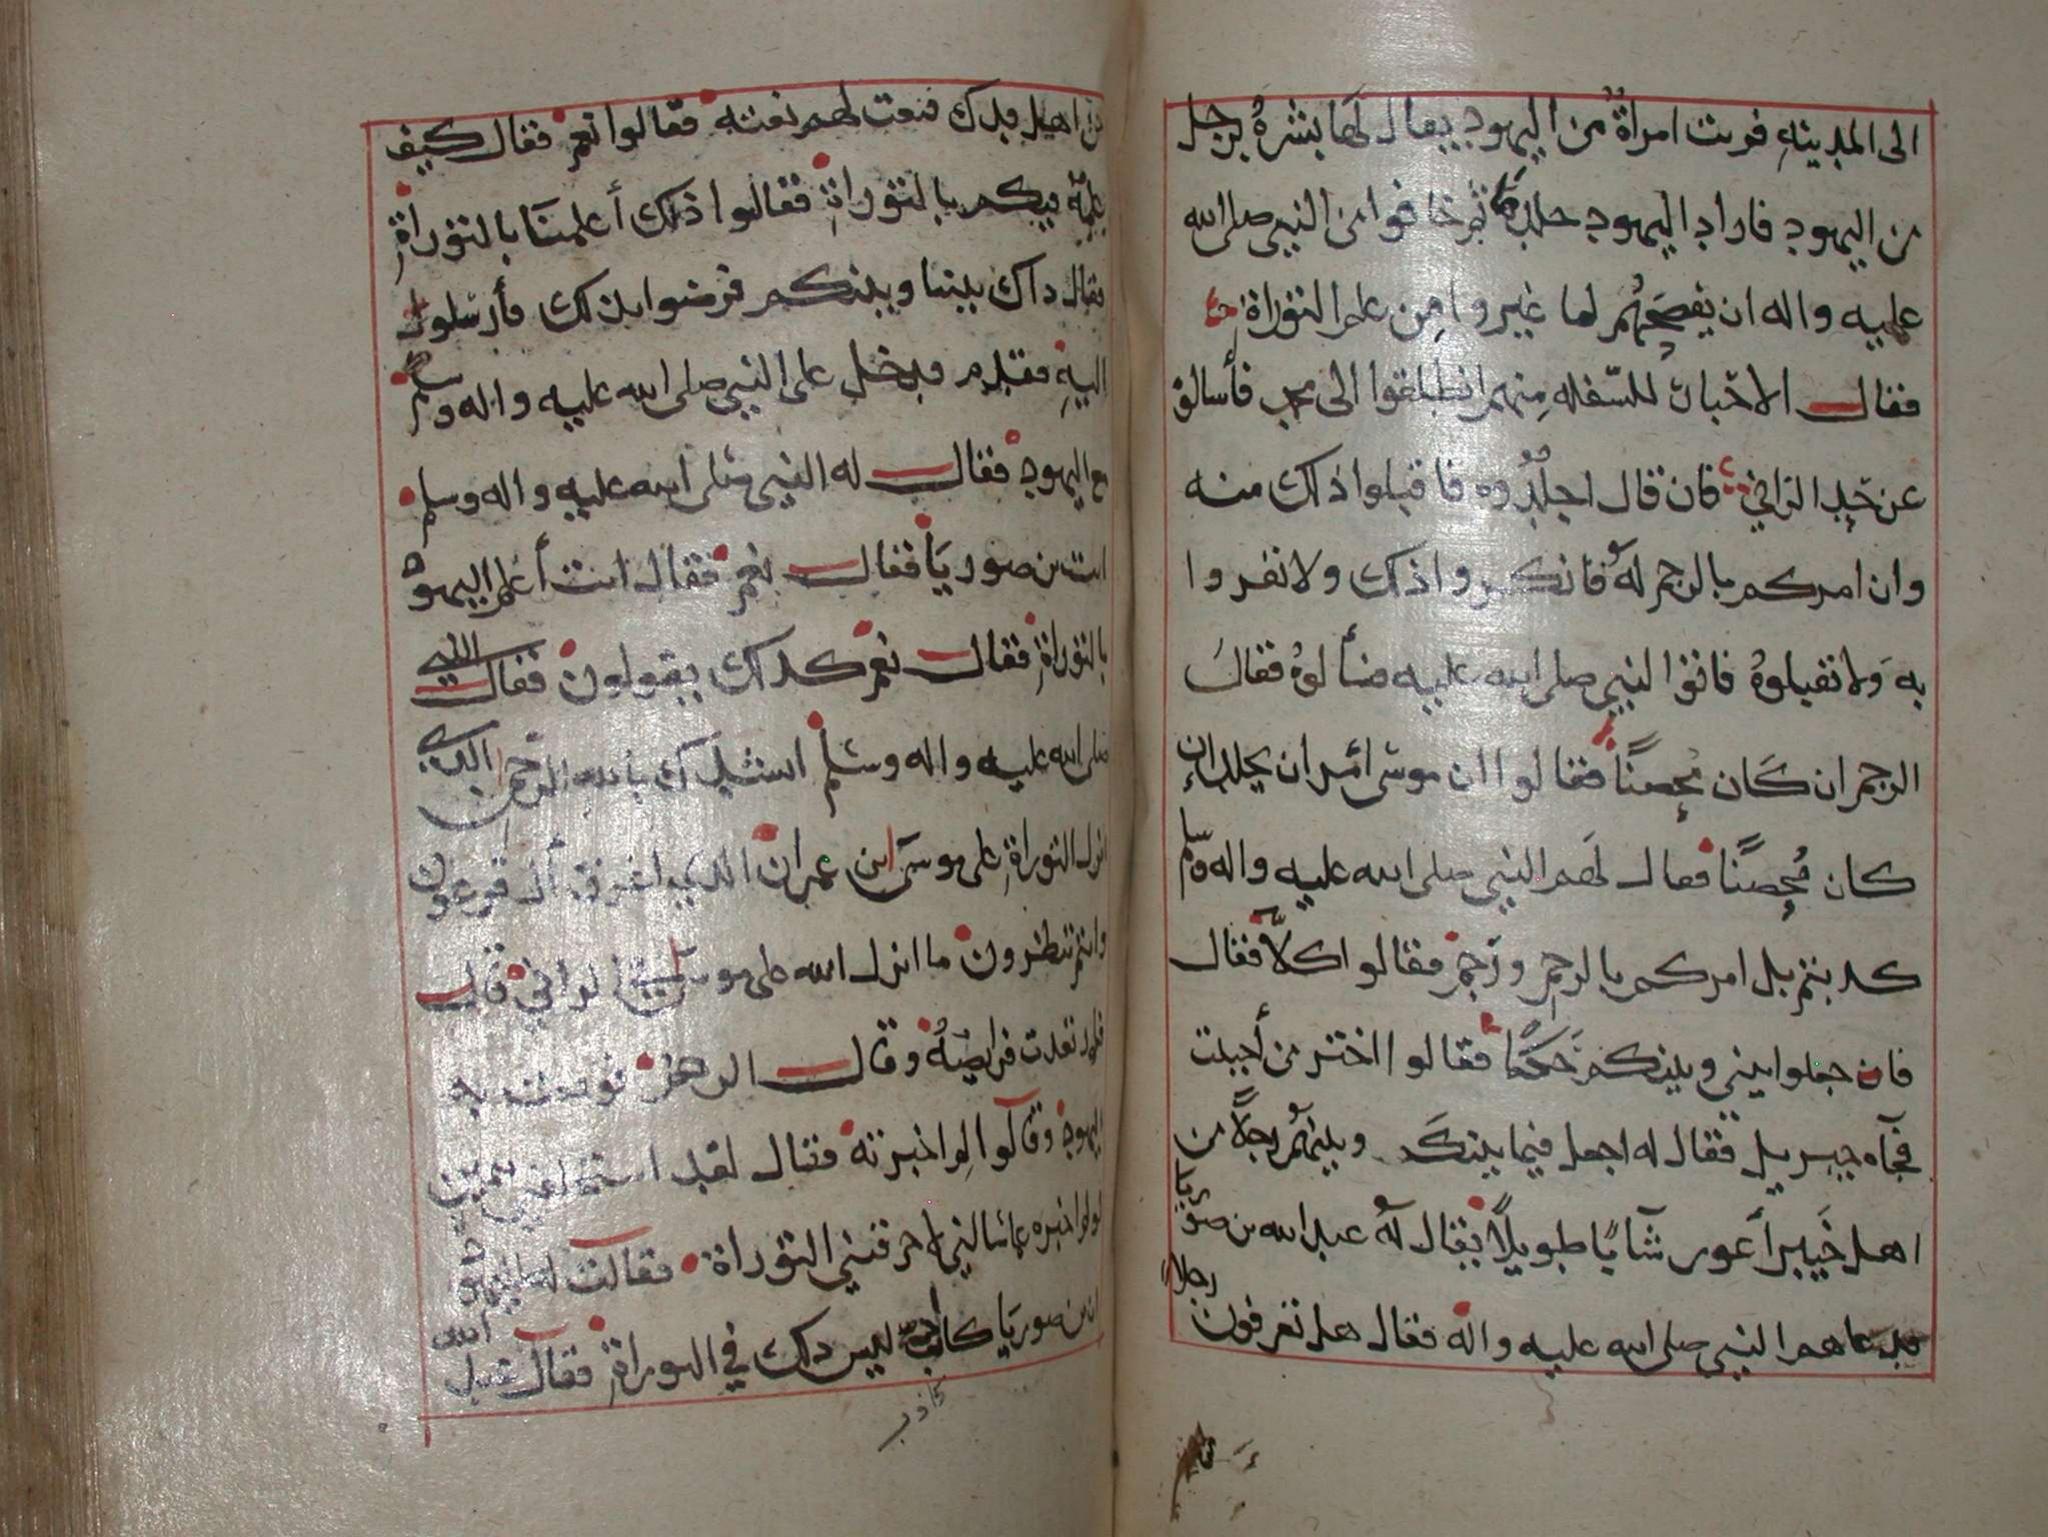 الى المدينه فزنت امراة من اليهود يقال لها بشرة برجل
من اليهود فاراد اليهود جلدها ثم خافوا من النبي صلى الله
عليه واله ان يفضحهم لما غيروا من علم التوراة
فقال الاحبار للسفله منهم انطلقوا الى محمد فأسالوه
عن حد الزاني فان قال اجلدوه فاقبلوا ذلك منه
وان امركم بالرجم له فانكروا ذلك ولا تقروا
به ولا تقبلوه فاتوا النبي صلى الله عليه فسألوه فقال
الرجم ان كان محصنًا فقالوا ان موسى امر ان يجلد ان
كان محصنًا فقال لهم النبي صلى الله عليه واله وسلم
كذبتم بل امركم بالرجم ورجم فقالوا كلا فقال
فان جعلوا بيني وبينكم حكمًا فقالوا اختر من أحببت
فجآه جبريل فقال له اجعل فيما بينك وبينهم رجلًا من
اهل خيبر أعور شآبًا طويلًا يقال له عبد الله بن صوريا
فدعاهم النبي صلى الله عليه واله فقال هل تعرفون رجلا
من اهل فدك فنعت لهم نعته فقالوا نعم فقال كيف
علمه فيكم بالتوراة فقالوا ذلك أعلمنا بالتوراة
فقال ذاك بيننا وبينكم فرضوا بذلك فأرسلوا
اليه فقدم فدخل على النبي صلى الله عليه واله وسلم
مع اليهود فقال له النبي صلى الله عليه واله وسلم
انت بن صوريا فقال نعم فقال انت أعلم اليهود
بالتوراة فقال نعم كذلك يقولون فقال النبي
صلى الله عليه واله وسلم انشدك بالله الرحمن الذي
انزل التوراة على موسى ابن عمران الذي اغرق أل فرعون
وانتم تنظرون ما انزل الله على موسى في الزاني قال
وقال الرهن به
اليهود وقالوا لم اخبرته فقال لقد استحلفني بيمين
لو لم اخبره عما سالني لاحرقتني التوراة فقالت له اليهود
ابن صوريا كاذب ليس ذلك في التوراة فقال عبد الله
كاذب